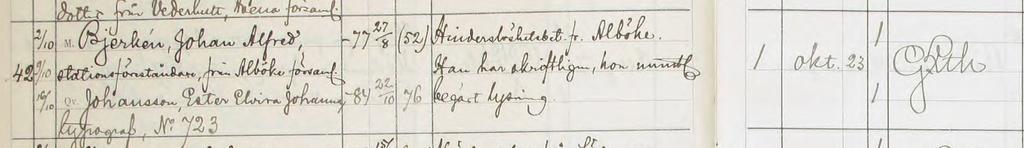 dotter från Vederhult, Mena församl.
2/10 M. Bjerkén, Johan Alfred, -77 27/8 (52) Hinderslöshetsbet. fr. Alböke.
42 9/10 stationsföreståndare, från Alböke församl. Han har skriftligen, hon muntl. 1 1 okt. 23
16/10 Qv. Johansson, Ester Elvira Johanna, -84 22/10 76 begärt lysning. 1
typograf, No 723